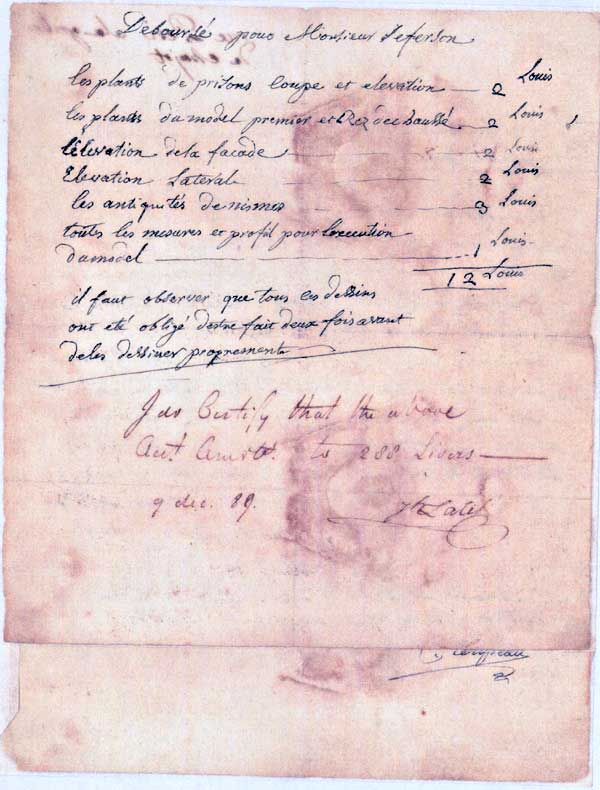 Déboursé pour Monsieur Jeferson
les plants de prisons Coupe et elevation — 2 Louis
les plants du model premier et Réz de chaussé 2 Louis
l'élevation de la facade — 2 Louis
Elevation Laterale — 2 Louis
les antiquités de nismes — 3 Louis
toutes les mesures et profil pour l'execution
du model — 1 Louis
12 Louis
il faut observer que tous ces dessins
ont eté obligé destre fait deux fois avant
de les dessiner proprement
I do Certify that the above
Acct. Amts. to 288 Livers —
9 dec. 89.